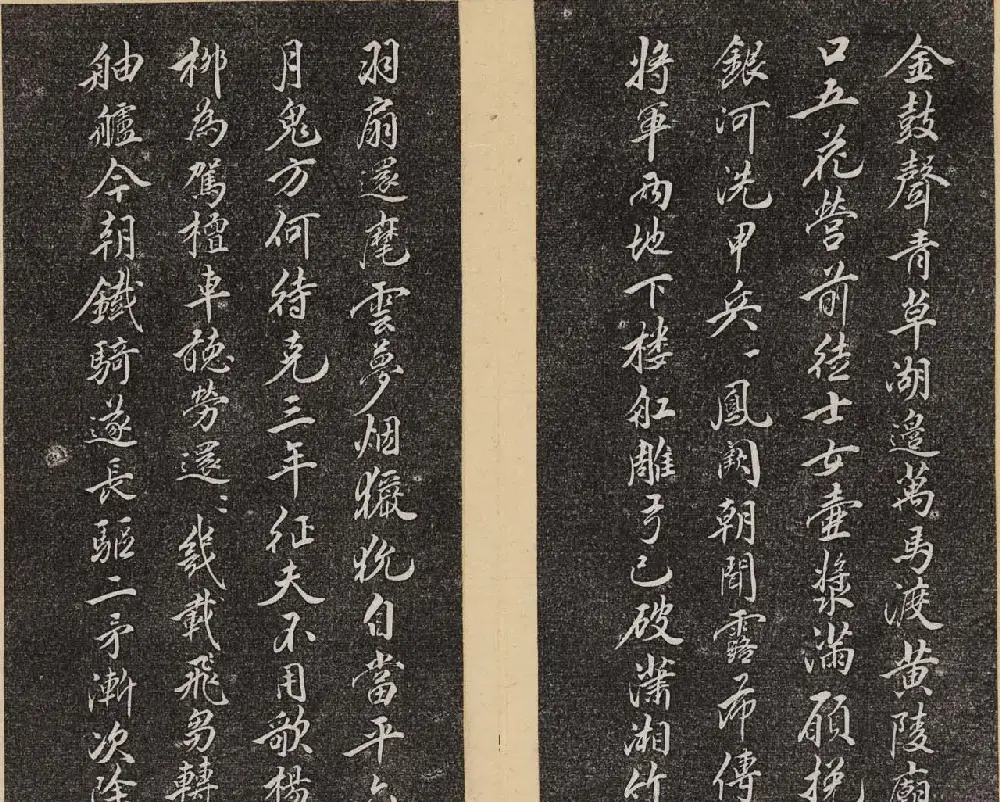 金鼓聲青草湖邊萬馬渡黃陵廟
口五花營前徒士女壺漿滿願挽
銀河洗甲兵一鳳闕朝聞露布傳
將軍兩地下楼舡雕弓已破瀟湘竹
羽扇還麾雲夢烟玁狁自當平六
月鬼方何待克三年征夫不用歌楊
柳為駕檀車勞還幾載飛芻轉
舳艫今朝鐵騎遂長驅二矛漸次除